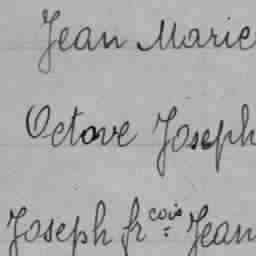 Jean Marie
Octave Joseph
Joseph fr.cois Jean